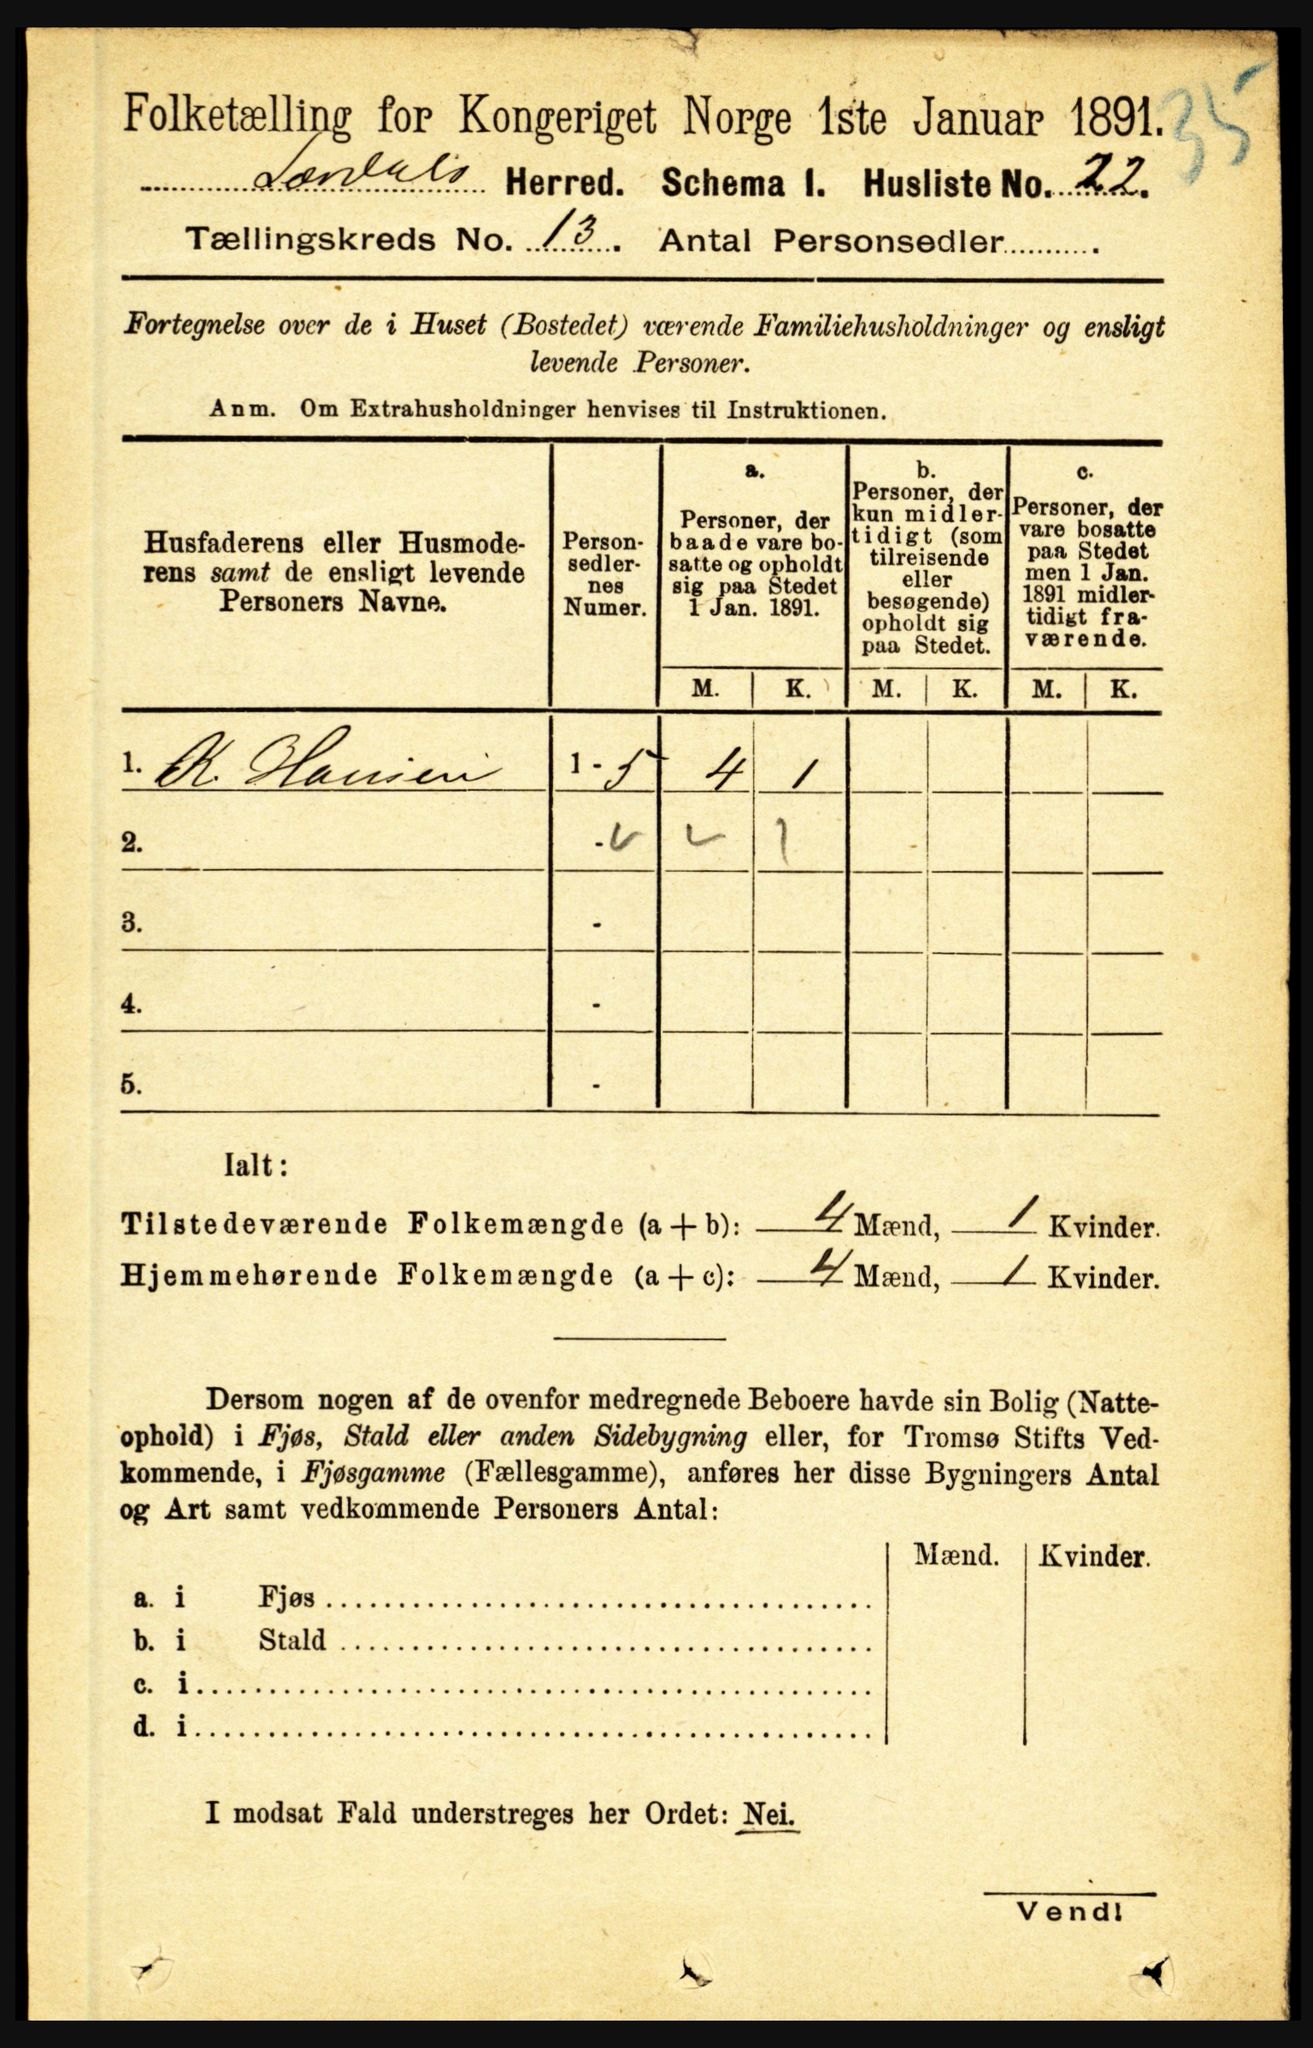 35
Folketælling for Kongeriget Norge 1ste Januar 1891.
Lærdals Herred. Schema I. Husliste No. 22.
Tællingskreds No. 13. Antal Personsedler..........
Fortegnelse over de i Huset (Bostedet) værende Familiehusholdninger og ensligt
levende Personer.
Anm. Om Extrahusholdninger henvises til Instruktionen.
Husfaderens eller Husmode-
rens samt de ensligt levende
Personers Navne.
Person-
sedler-
nes
Numer.
a.
Personer, der
baade vare bo-
satte og opholdt
sig paa Stedet
1 Jan. 1891.
b.
Personer, der
kun midler-
tidigt (som
tilreisende
eller
besøgende)
opholdt sig
paa Stedet.
c.
Personer, der
vare bosatte
paa Stedet
men 1 Jan.
1891 midler-
tidigt fra-
værende.
M. K. M. K. M. K.
1. K. Hansen 1 - 5 4 1
2. - 1
3. -
4. -
5. -
Ialt:
Tilstedeværende Folkemængde (a + b): 4 Mænd, 1 Kvinder.
Hjemmehørende Folkemængde (a + c): 4 Mænd, 1 Kvinder.
Dersom nogen af de ovenfor medregnede Beboere havde sin Bolig (Natte-
ophold) i Fjøs, Stald eller anden Sidebygning eller, for Tromsø Stifts Ved-
kommende, i Fjøsgamme (Fællesgamme), anføres her disse Bygningers Antal
og Art samt vedkommende Personers Antal:
Mænd. Kvinder.
a. i Fjøs
b. i Stald
c. i
d. i
I modsat Fald understreges her Ordet: Nei.
Vend!